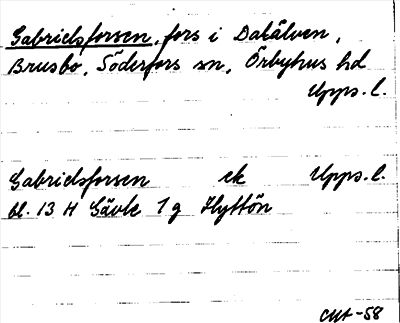 Gabrielsforsen, fors i Dalälven,
Brusbo, Söderfors sn, Örbyhus hd
Upps.l.
Gabrielsforsen ek Upps.l.
bl. 13 H Gävle 1 g Hyttön
-58